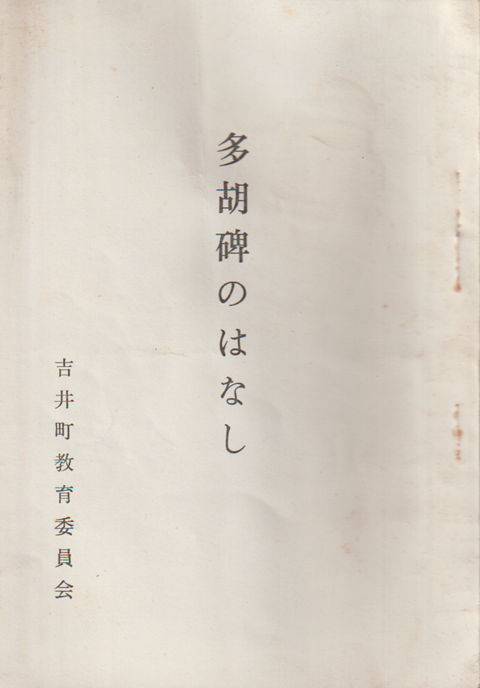 多胡碑のはなし
吉井町教育委員会